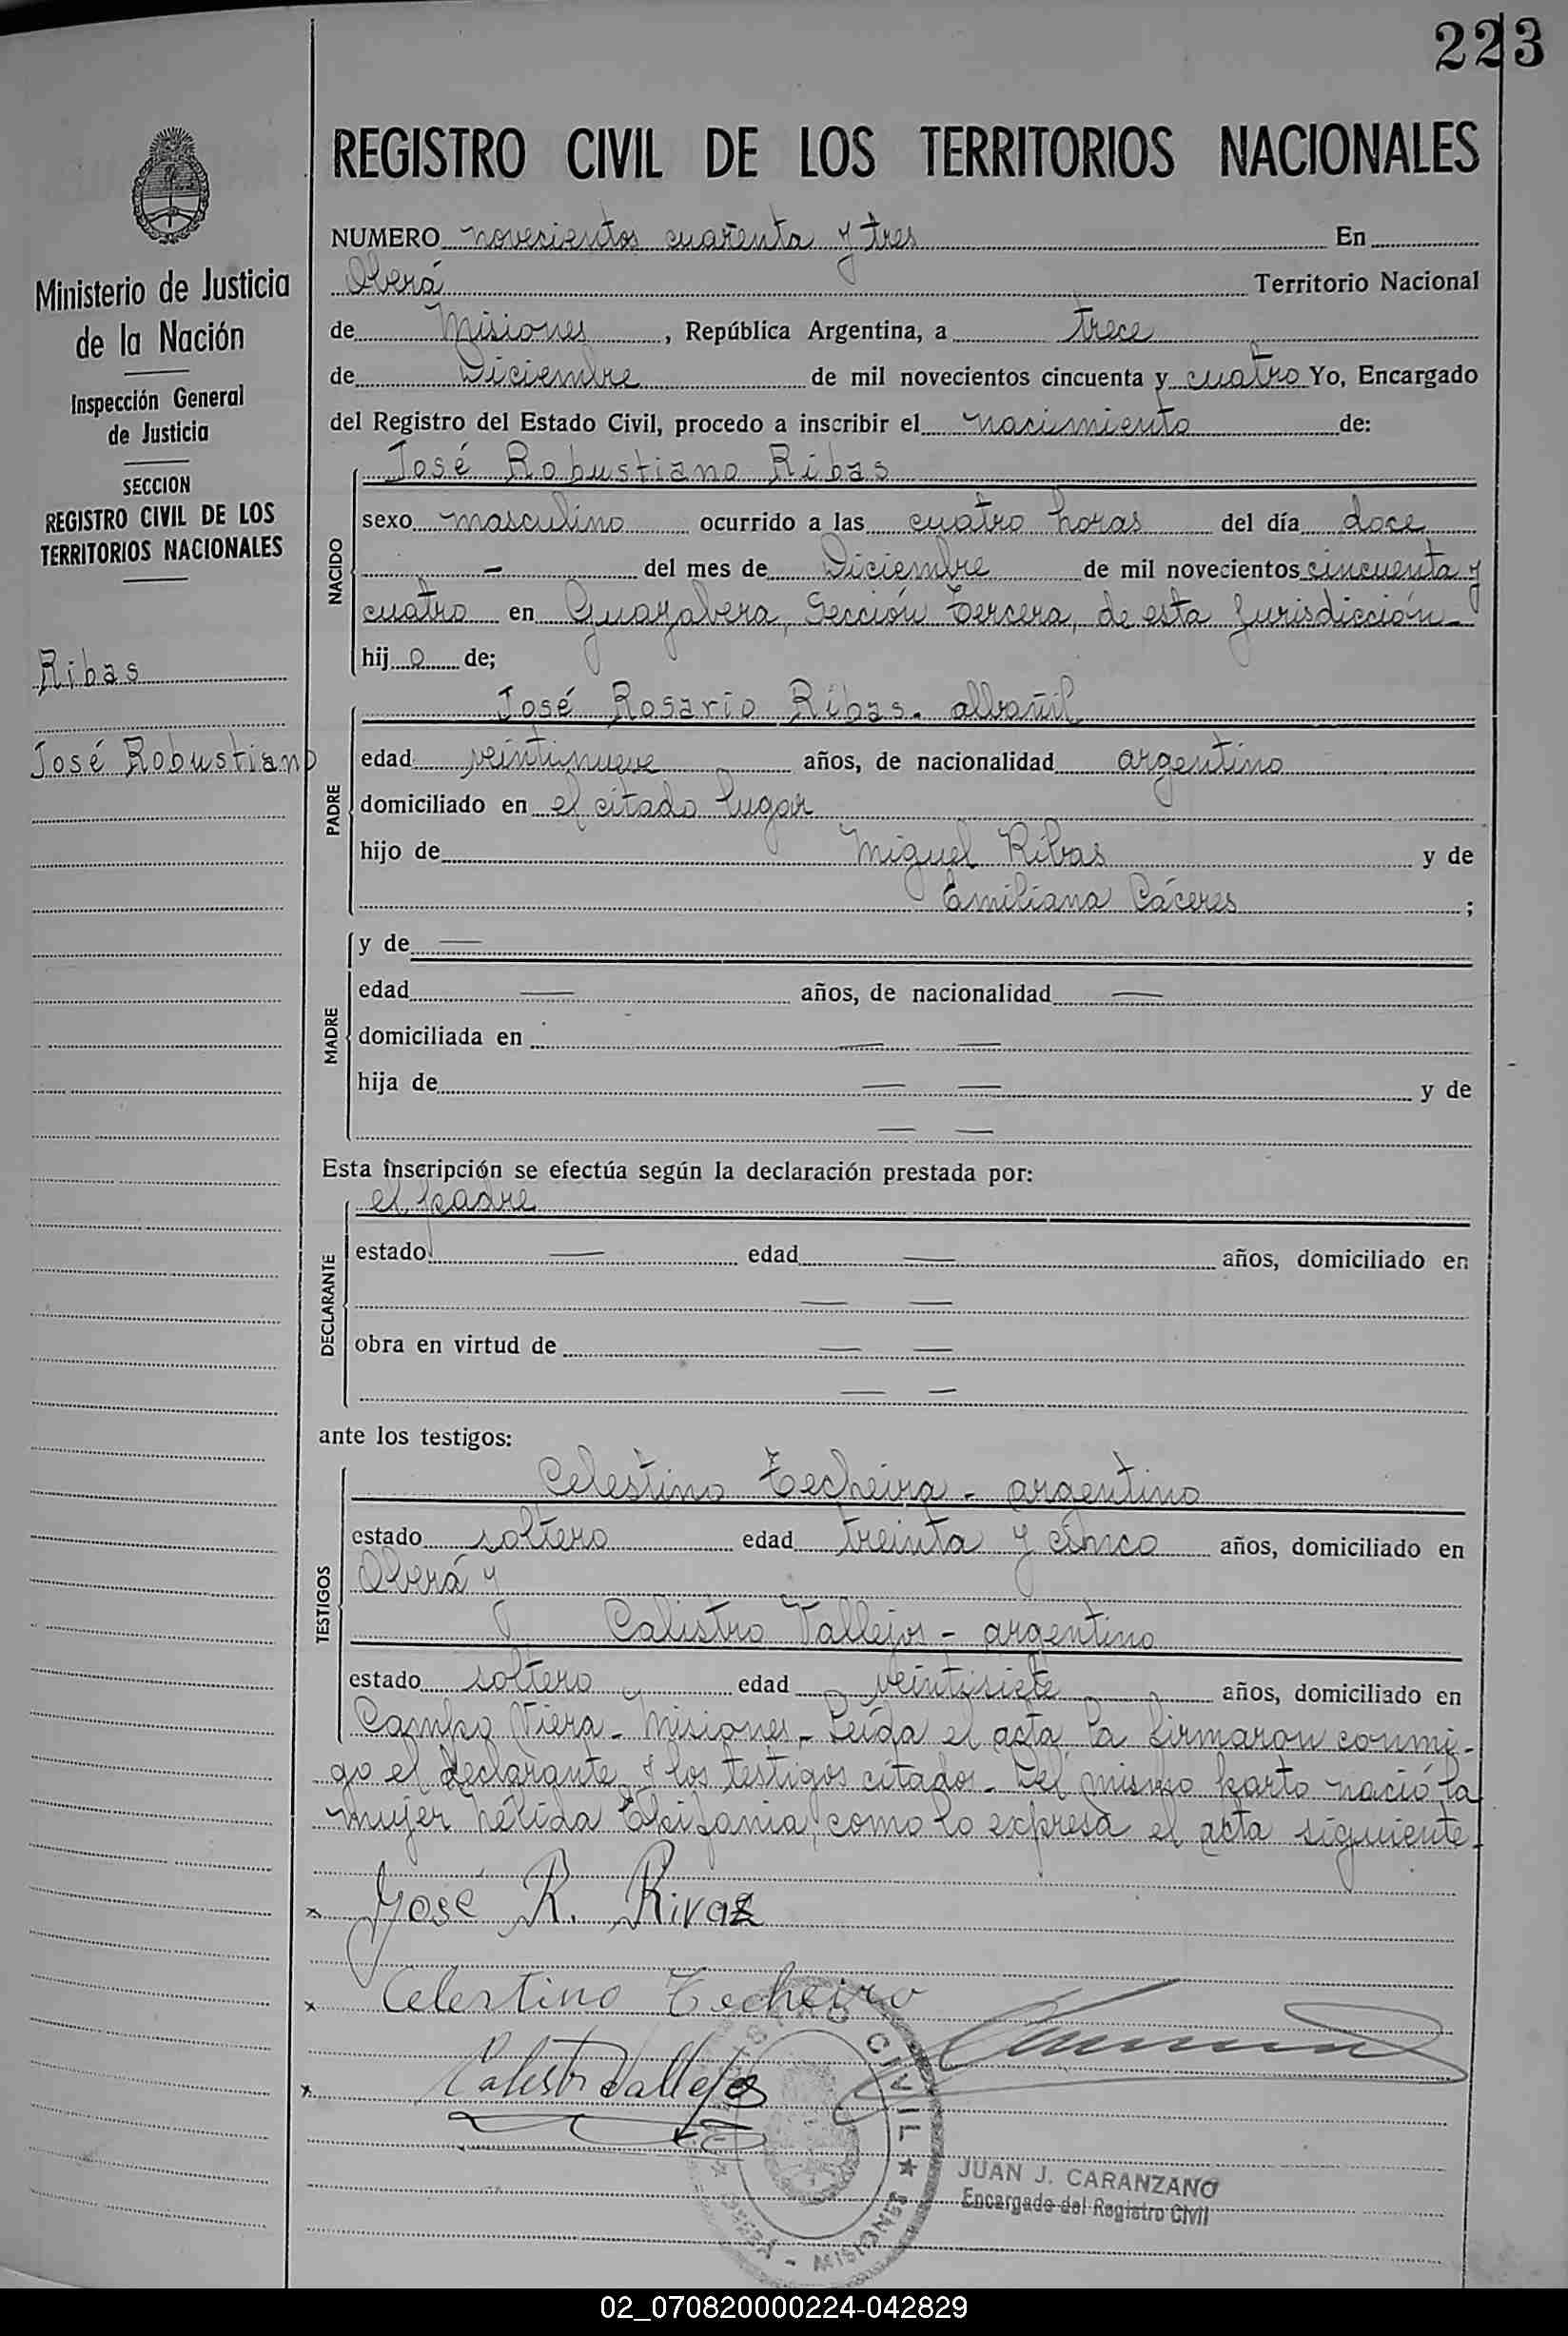 223
REGISTRO CIVIL DE LOS TERRITORIOS NACIONALES
Ministerio de Justicia
de la Nación
Inspección General
de Justicia
SECCION
REGISTRO CIVIL DE LOS
TERRITORIOS NACIONALES
Ribas
José Robustiano
NUMERO novecientos cuarenta y tres En
Oberá Territorio Nacional
de Misiones, República Argentina, a trece
de Diciembre de mil novecientos cincuenta y cuatro Yo, Encargado
del Registro del Estado Civil, procedo a inscribir el nacimiento de:
NACIDO
José Robustiano Ribas
sexo masculino ocurrido a las cuatro horas del día doce
- del mes de Diciembre de mil novecientos cincuenta y
cuatro en Guayabera, Sección Tercera, de esta Jurisdicción-
hijo de;
PADRE
José Rosario Ribas. albañil
edad veintinueve años, de nacionalidad argentino
domiciliado en el citado lugar
hijo de Miguel Ribas y de
Emiliana Cáceres ;
MADRE
y de —
edad — años, de nacionalidad —
domiciliada en — —
hija de — — y de
— —
Esta inscripción se efectúa según la declaración prestada por:
DECLARANTE
el padre
estado — edad — años, domiciliado en
— —
obra en virtud de — —
— —
ante los testigos:
TESTIGOS
Celestino Techeira - argentino
estado soltero edad treinta y cinco años, domiciliado en
Oberá y
Calistro Vallejos - argentino
estado soltero edad veintisiete años, domiciliado en
Campo Viera - Misiones - Leída el acta la firmaron conmi-
go el declarante y los testigos citados. Del mismo parto nació la
mujer Nélida Epifania, como lo expresa el acta siguiente.
x José R. Rivaz
x Celestino Techeira
x Calistr Vallejos
REGISTRO CIVIL ★ OBERA - MISIONES ★
JUAN J. CARANZANO
Encargado del Registro Civil
02_070820000224-042829